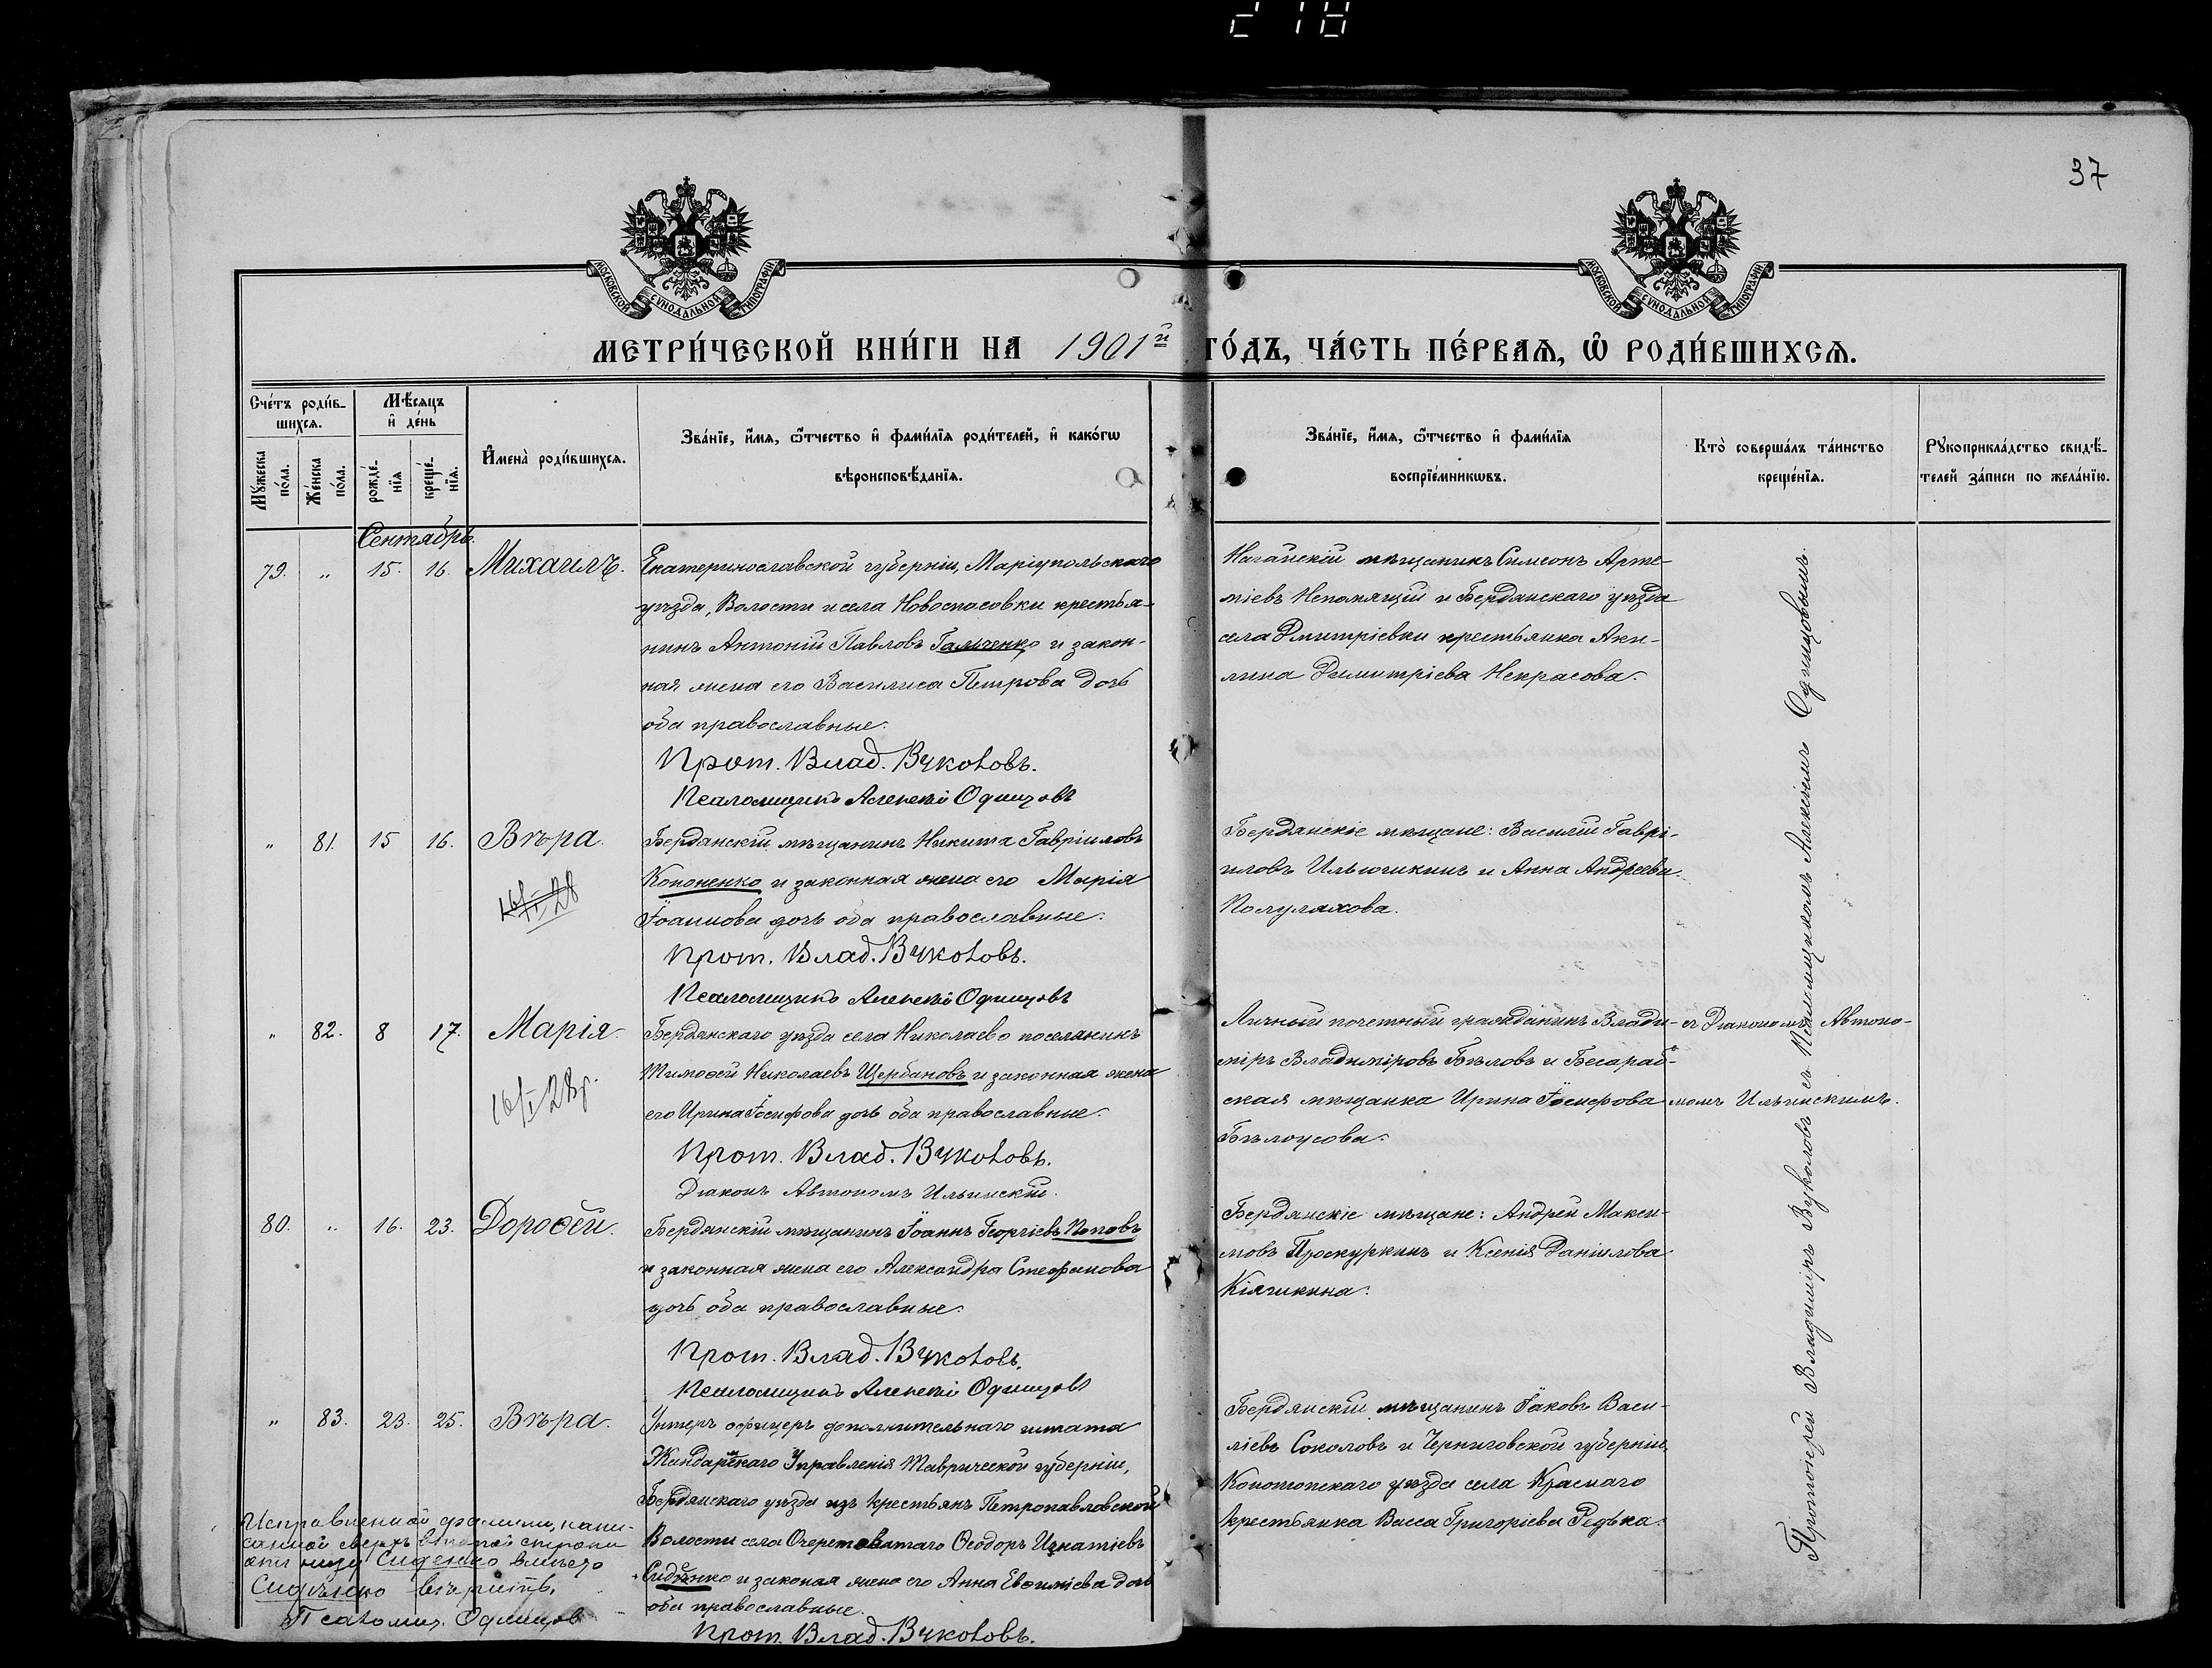 218
37
МОСКОВСКОЙ СѴНОДАЛЬНОЙ ТИПОГРАФІИ
МОСКОВСКОЙ СѴНОДАЛЬНОЙ ТИПОГРАФІИ
МЕТРИ́ЧЕСКОЙ КНИ́ГИ НА 1901й ГО́ДЪ, ЧА́СТЬ ПЕ́РВАѦ, Ѡ РОДИ́ВШИХСѦ.
Сче́тъ роди́в-
шихсѧ.
Мꙋ́жеска по́ла.
Же́нска по́ла.
Мѣ́сѧцъ
и҆ де́нь
рожде́-нїѧ
креще́-нїѧ.
И҆мена̀ роди́вшихсѧ.
Зва́нїе, и҆́мѧ, ѻ҆́тчество и҆ фами́лїѧ роди́телей, и҆ како́гѡ
вѣроисповѣ́данїѧ.
Зва́нїе, и҆́мѧ, ѻ҆́тчество и҆ фами́лїѧ
воспрїе́мникѡвъ.
Кто̀ соверша́лъ та́инство
креще́нїѧ.
Рꙋкоприкла́дство свидѣ́-
телей за́писи по жела́нїю.
Сентябрь.
79. " 15. 16. Михаилъ.
Екатеринославской губерніи, Маріупольскаго
уѣзда, Волости и села Новоспасовки крестья-
нинъ Антоній Павловъ Гальченко и закон-
ная жена его Василиса Петрова дочь
оба православные.
Прот. Влад. Вуколовъ.
Псаломщикъ Алексѣй Одинцовъ
Нагайскій мѣщанинъ Симеонъ Арте-
міевъ Непомящій и Бердянскаго уѣзда
села Дмитріевки крестьянка Аки-
лина Димитріева Некрасова.
" 81. 15 16. Вѣра.
Бердянскій мѣщанинъ Никита Гавріиловъ
Кононенко и законная жена его Марія
Іоаннова дочь оба православные.
Прот. Влад. Вуколовъ.
Псаломщикъ Алексѣй Одинцовъ
16/II 28
Бердянскіе мѣщане: Василій Гаврі-
иловъ Ильюшкинъ и Анна Андреева
Полуляхова.
" 82. 8 17. Марія.
Бердянскаго уѣзда села Николаево поселянинъ
Тимоѳей Николаевъ Щербановъ и законная жена
его Ирина Іосифова дочь оба православные.
Прот. Влад. Вуколовъ.
Діаконъ Автономъ Ильинскій.
16/I 28г.
Личный почетный гражданинъ Влади-
міръ Владиміровъ Бѣловъ и Бесараб-
ская мѣщанка Ирина Іосифова
Бѣлоусова.
съ Діакономъ Автоно-
момъ Ильинскимъ.
80. " 16. 23. Дороѳей.
Бердянскій мѣщанинъ Іоаннъ Георгіевъ Поповъ
и законная жена его Александра Стефанова
дочь оба православные.
Прот. Влад. Вуколовъ.
Псаломщикъ Алексѣй Одинцовъ
Бердянскіе мѣщане: Андрей Макси-
мовъ Проскуркинъ и Ксенія Даніилова
Кіяшкина.
" 83. 23. 25. Вѣра.
Унтеръ офицеръ дополнительнаго штата
Жандармскаго Управленія Таврической губерніи,
Бердянскаго уѣзда изъ крестьянъ Петропавловской
Волости села Очеретоватаго Ѳеодоръ Игнатіевъ
Сиденко и законая жена его Анна Евѳиміева дочь
оба православные.
Прот. Влад. Вуколовъ.
Бердянскій мѣщанинъ Іаковъ Васи-
ліевъ Соколовъ и Черниговской губерніи,
Конотопскаго уѣзда села Краснаго
крестьянка Васса Григоріева Редька.
Исправленной фамиліи, напи-
санной сверхъ второй строки
отъ низу Сиденко вмѣсто
Сидѣнко вѣрить.
Псаломщ. Одинцов
Протоіерей Владиміръ Вуколовъ съ Псаломщикомъ Алексѣемъ Одинцовымъ.